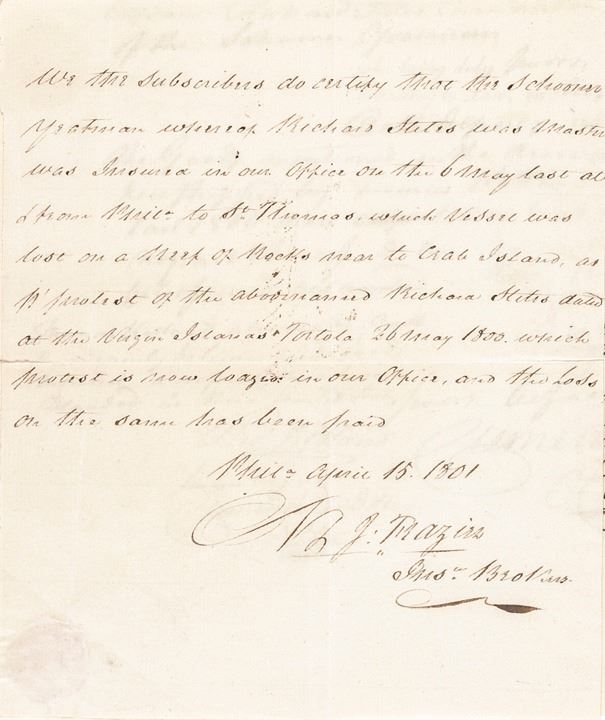 We the Subscribers do certify that the Schooner
Yeatman whereof Richard Stites was Master
was Insured in our Office on the 6 May last at
& from Phila to St Thomas, which Vessel was
lost on a Reef of Rocks near to Crab Island, as
pr protest of the abovenamed Richard Stites dated
at the Virgin Islands Tortola 26 May 1800 which
protest is now lodged in our Office, and the Loss
on the same has been paid
Phila April 15. 1801
N & J: Frazier
Insce Brokers